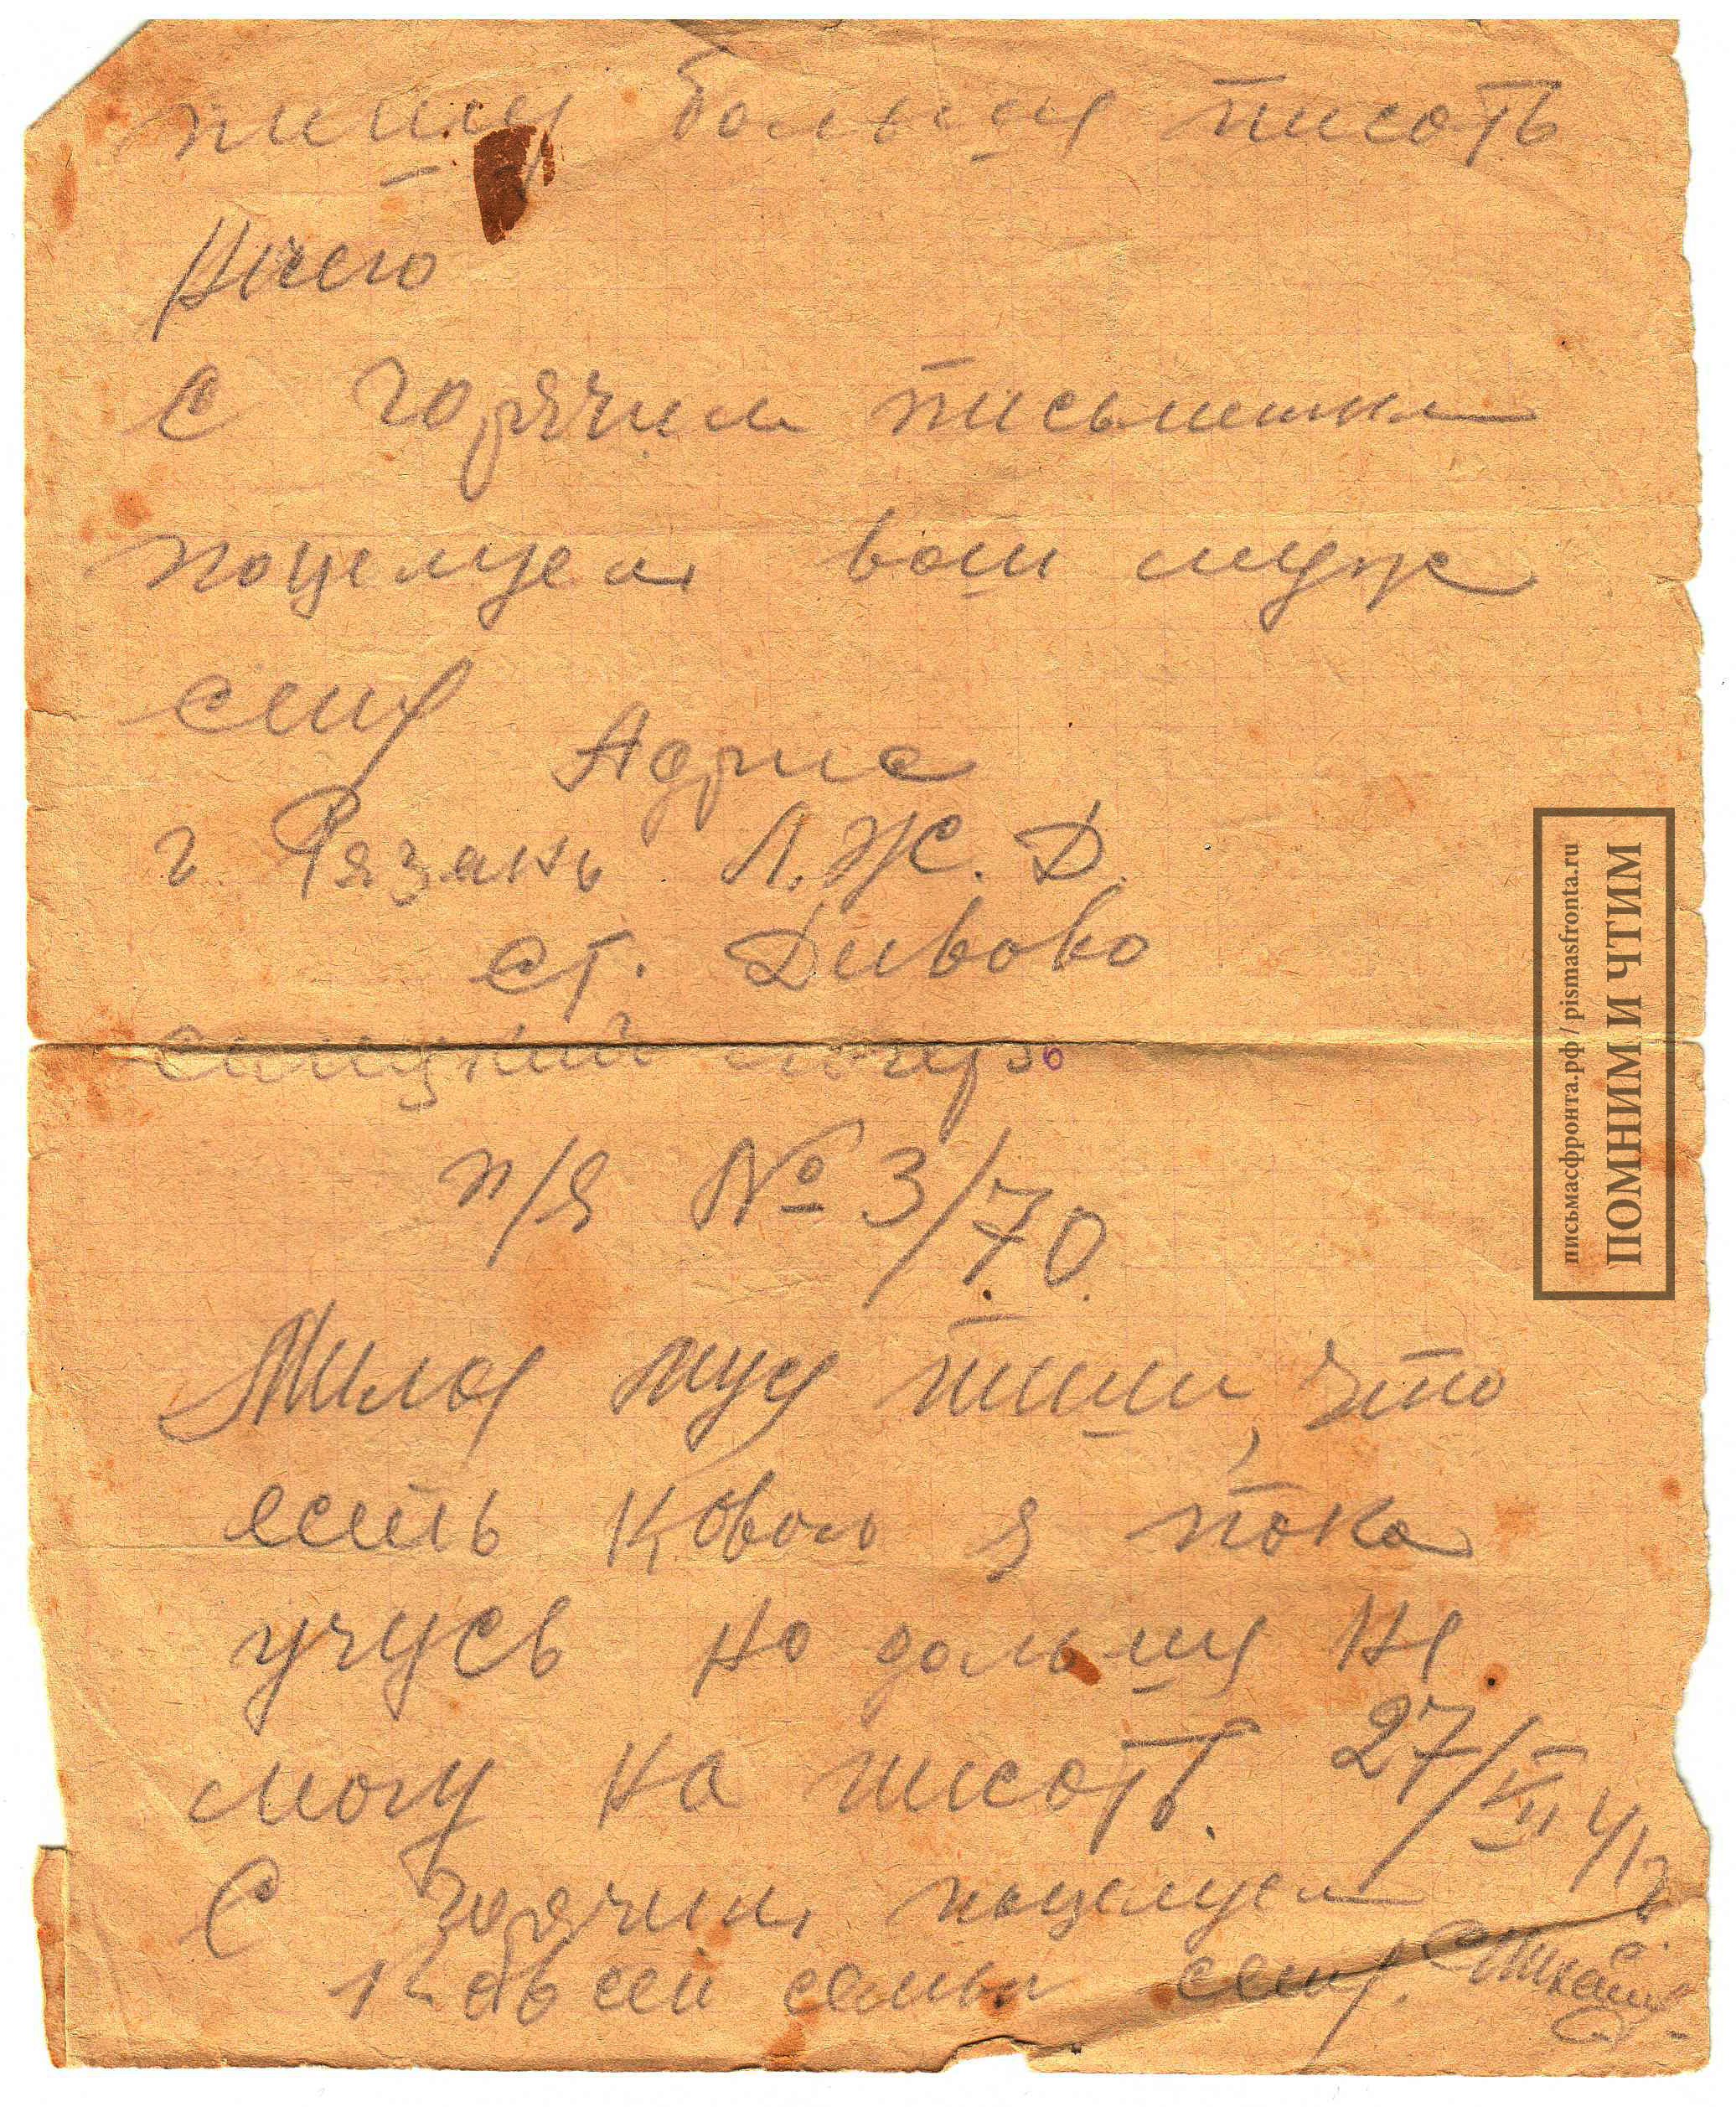 пишу большу писать
Ничего
с горячим письмешком
поцелуем ваш муж
сину
Адрис
г Рязань Л.Ж.Д.
ст. Дивово
п/я № 3/70.
Милая пиши, что
есть я пока
учусь но дольшу не
могу на писать. 27/XII 41г
С горячим поцелуем
ковсей семьи
письмасфронта.рф / pismasfronta.ru
ПОМНИМ И ЧТИМ